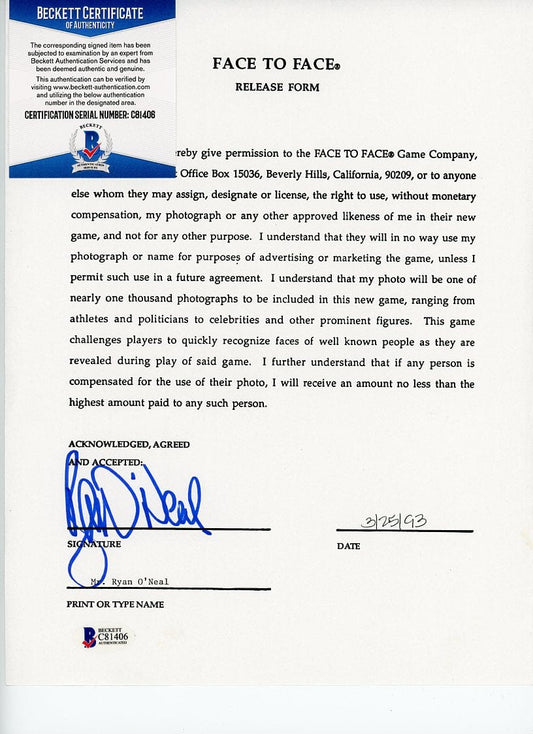 BECKETT CERTIFICATE
OF AUTHENTICITY
The corresponding signed item has been
subjected to examination by an expert from
Beckett Authentication Services and has
been deemed authentic and genuine.
This authentication can be verified by
visiting www.beckett-authentication.com
and utilizing the below authentication
number in the designated area.
CERTIFICATION SERIAL NUMBER: C81406
BECKETT
B
FACE TO FACE®
RELEASE FORM
reby give permission to the FACE TO FACE® Game Company,
Office Box 15036, Beverly Hills, California, 90209, or to anyone
else whom they may assign, designate or license, the right to use, without monetary
compensation, my photograph or any other approved likeness of me in their new
game, and not for any other purpose. I understand that they will in no way use my
photograph or name for purposes of advertising or marketing the game, unless I
permit such use in a future agreement. I understand that my photo will be one of
nearly one thousand photographs to be included in this new game, ranging from
athletes and politicians to celebrities and other prominent figures. This game
challenges players to quickly recognize faces of well known people as they are
revealed during play of said game. I further understand that if any person is
compensated for the use of their photo, I will receive an amount no less than the
highest amount paid to any such person.
ACKNOWLEDGED, AGREED
AND ACCEPTED:
Ryan O'Neal
3/25/93
SIGNATURE
DATE
Mr. Ryan O'Neal
PRINT OR TYPE NAME
B BECKETT
C81406
AUTHENTICATED